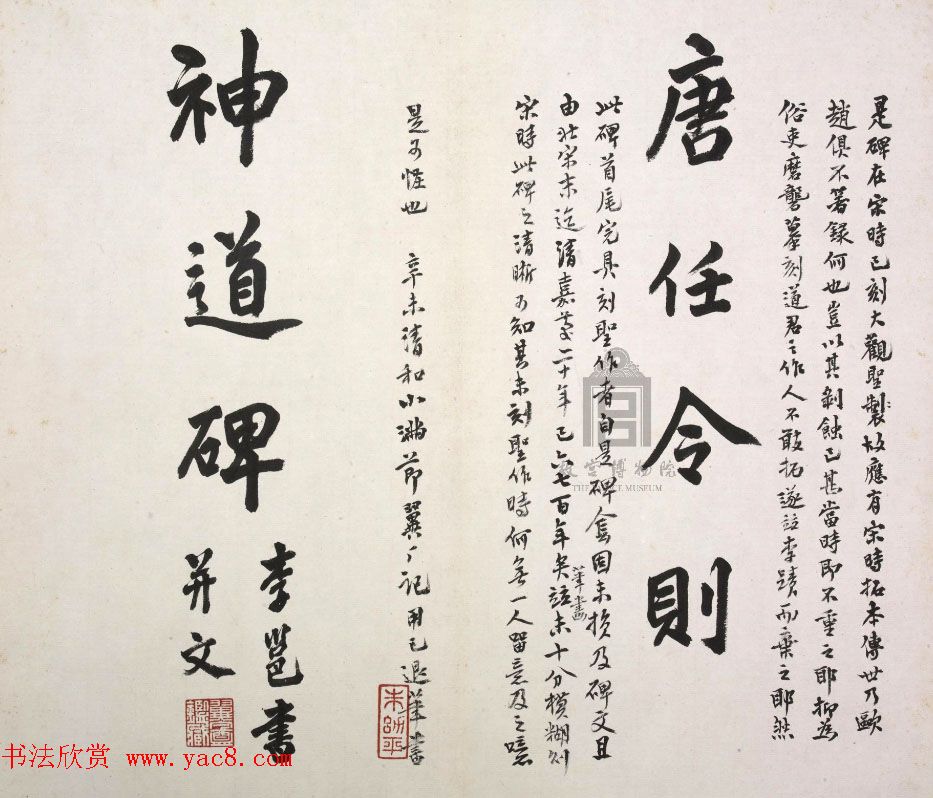 是碑在宋時已刻大觀聖製故應有宋時拓本傳世乃歐
趙俱不著録何也豈以其剝蝕已甚當時即不重之耶抑為
俗吏磨礱摹刻道君之作人不敢拓遂竝李蹟而棄之耶然
唐任令則
此碑首尾完具刻聖作者自是碑陰固未損及碑文且
由北宋末迄清嘉慶二十年已六七百年矣筆畫竝未十分模糊則
宋時此碑之清晰可知其未刻聖作時何無一人留意及之噫
是可怪也 辛未清和小滿節翼厂記用已退筆書
朱翼盦
神道碑
李邕書
并文
故宮博物院
THE PALACE MUSEUM
书法欣赏 www.yac8.com